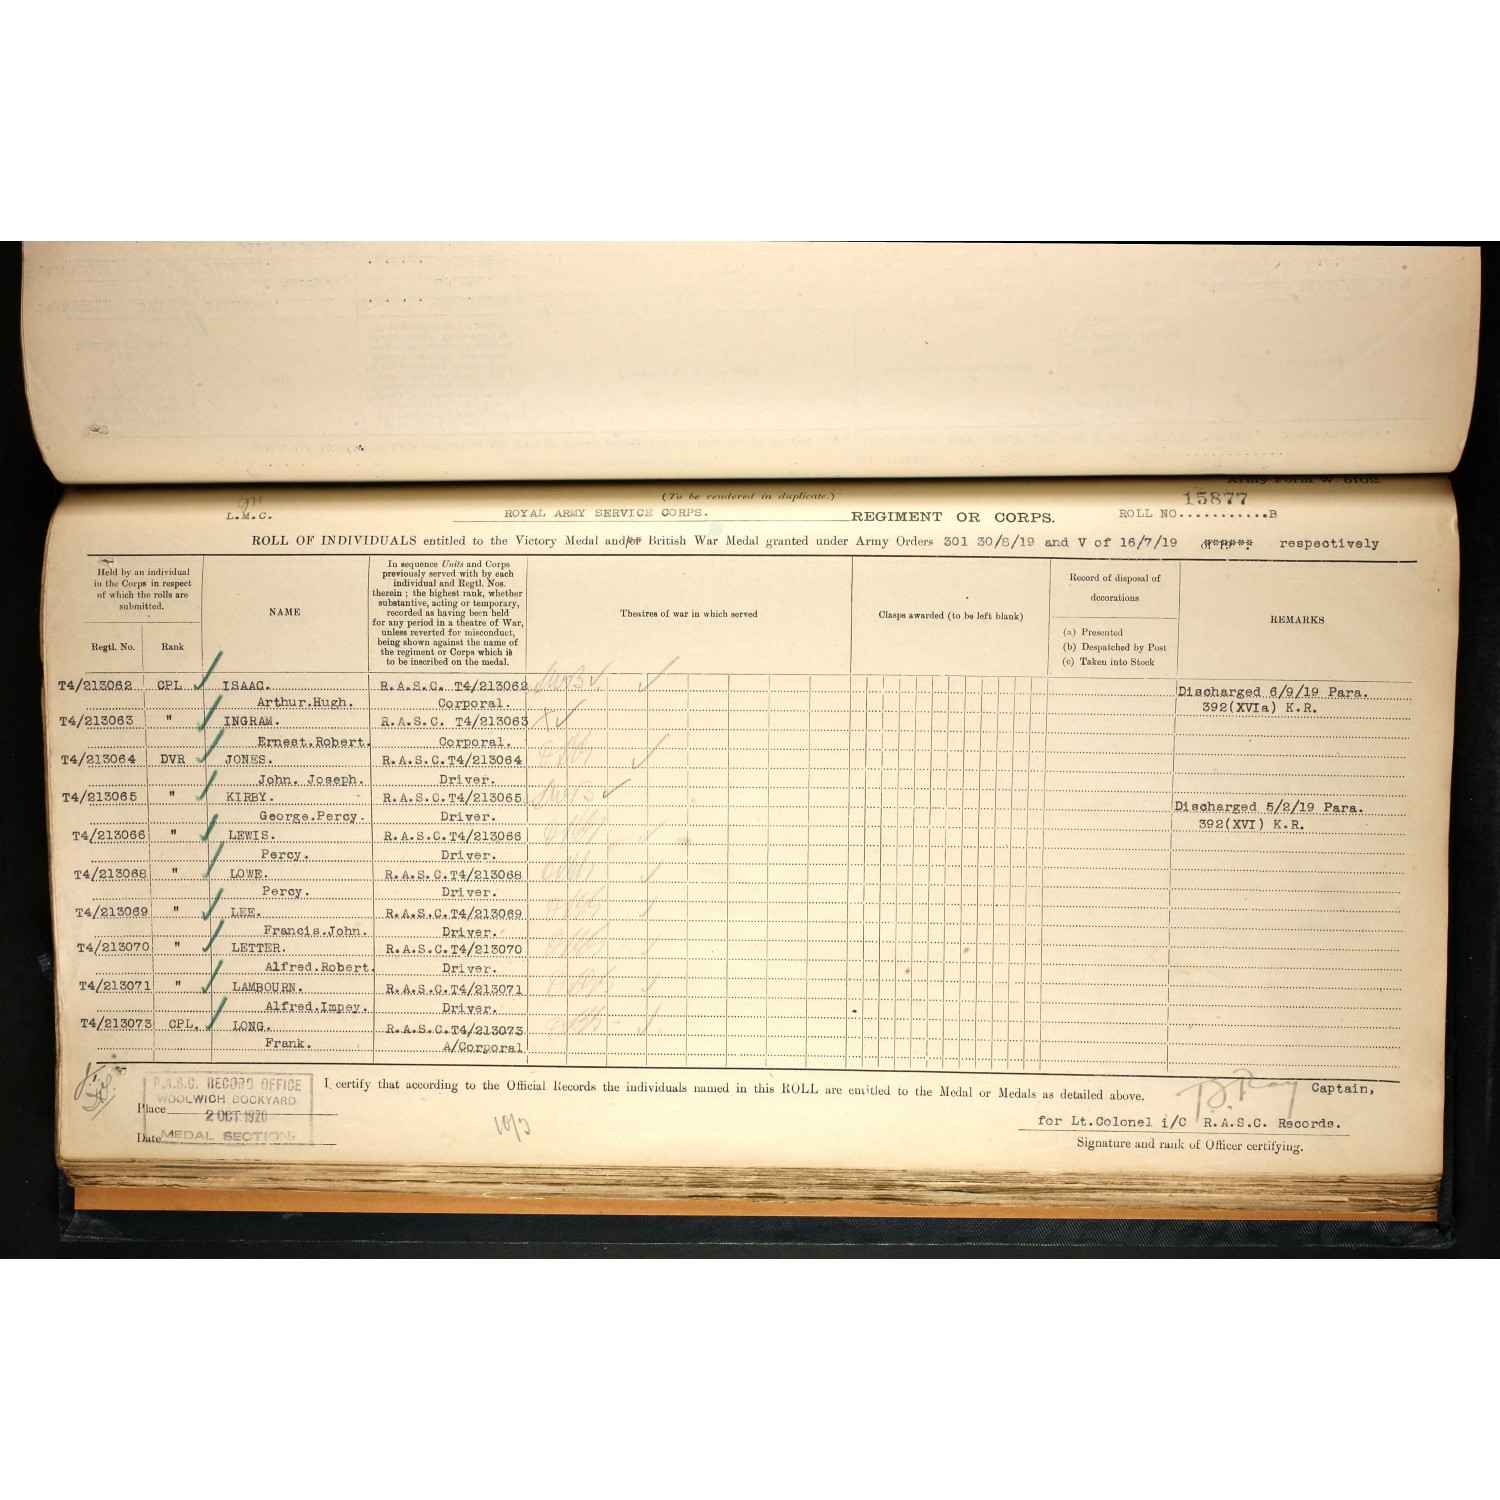 (To be rendered in duplicate.)
15877
L.M.C.
ROYAL ARMY SERVICE CORPS. REGIMENT OR CORPS. ROLL NO...........B
ROLL OF INDIVIDUALS entitled to the Victory Medal and/or British War Medal granted under Army Orders 301 30/8/19 and V of 16/7/19 respectively
Held by an individual
in the Corps in respect
of which the rolls are
submitted.
Regtl. No. Rank
NAME
In sequence Units and Corps
previously served with by each
individual and Regtl. Nos.
therein ; the highest rank, whether
substantive, acting or temporary,
recorded as having been held
for any period in a theatre of War,
unless reverted for misconduct,
being shown against the name of
the regiment or Corps which is
to be inscribed on the medal.
Theatres of war in which served
Clasps awarded (to be left blank)
Record of disposal of
decorations
(a) Presented
(b) Despatched by Post
(c) Taken into Stock
REMARKS
T4/213062 CPL ISAAC. R.A.S.C. T4/213062 Discharged 6/9/19 Para.
Arthur.Hugh. Corporal. 392(XVIa) K.R.
T4/213063 " INGRAM. R.A.S.C. T4/213063
Ernest.Robert. Corporal.
T4/213064 DVR JONES. R.A.S.C.T4/213064
John. Joseph. Driver.
T4/213065 " KIRBY. R.A.S.C.T4/213065 Discharged 5/2/19 Para.
George.Percy. Driver. 392(XVI) K.R.
T4/213066 " LEWIS. R.A.S.C.T4/213066
Percy. Driver.
T4/213068 " LOWE. R.A.S.C.T4/213068
Percy. Driver.
T4/213069 " LEE. R.A.S.C.T4/213069
Francis.John. Driver.
T4/213070 " LETTER. R.A.S.C.T4/213070
Alfred.Robert. Driver.
T4/213071 " LAMBOURN. R.A.S.C.T4/213071
Alfred.Impey. Driver.
T4/213073 CPL. LONG. R.A.S.C.T4/213073
Frank. A/Corporal
I certify that according to the Official Records the individuals named in this ROLL are entitled to the Medal or Medals as detailed above.
R.A.S.C. RECORD OFFICE
WOOLWICH DOCKYARD
Place
2 OCT 1920
Date
MEDAL SECTION.
Captain,
for Lt.Colonel i/C R.A.S.C. Records.
Signature and rank of Officer certifying.